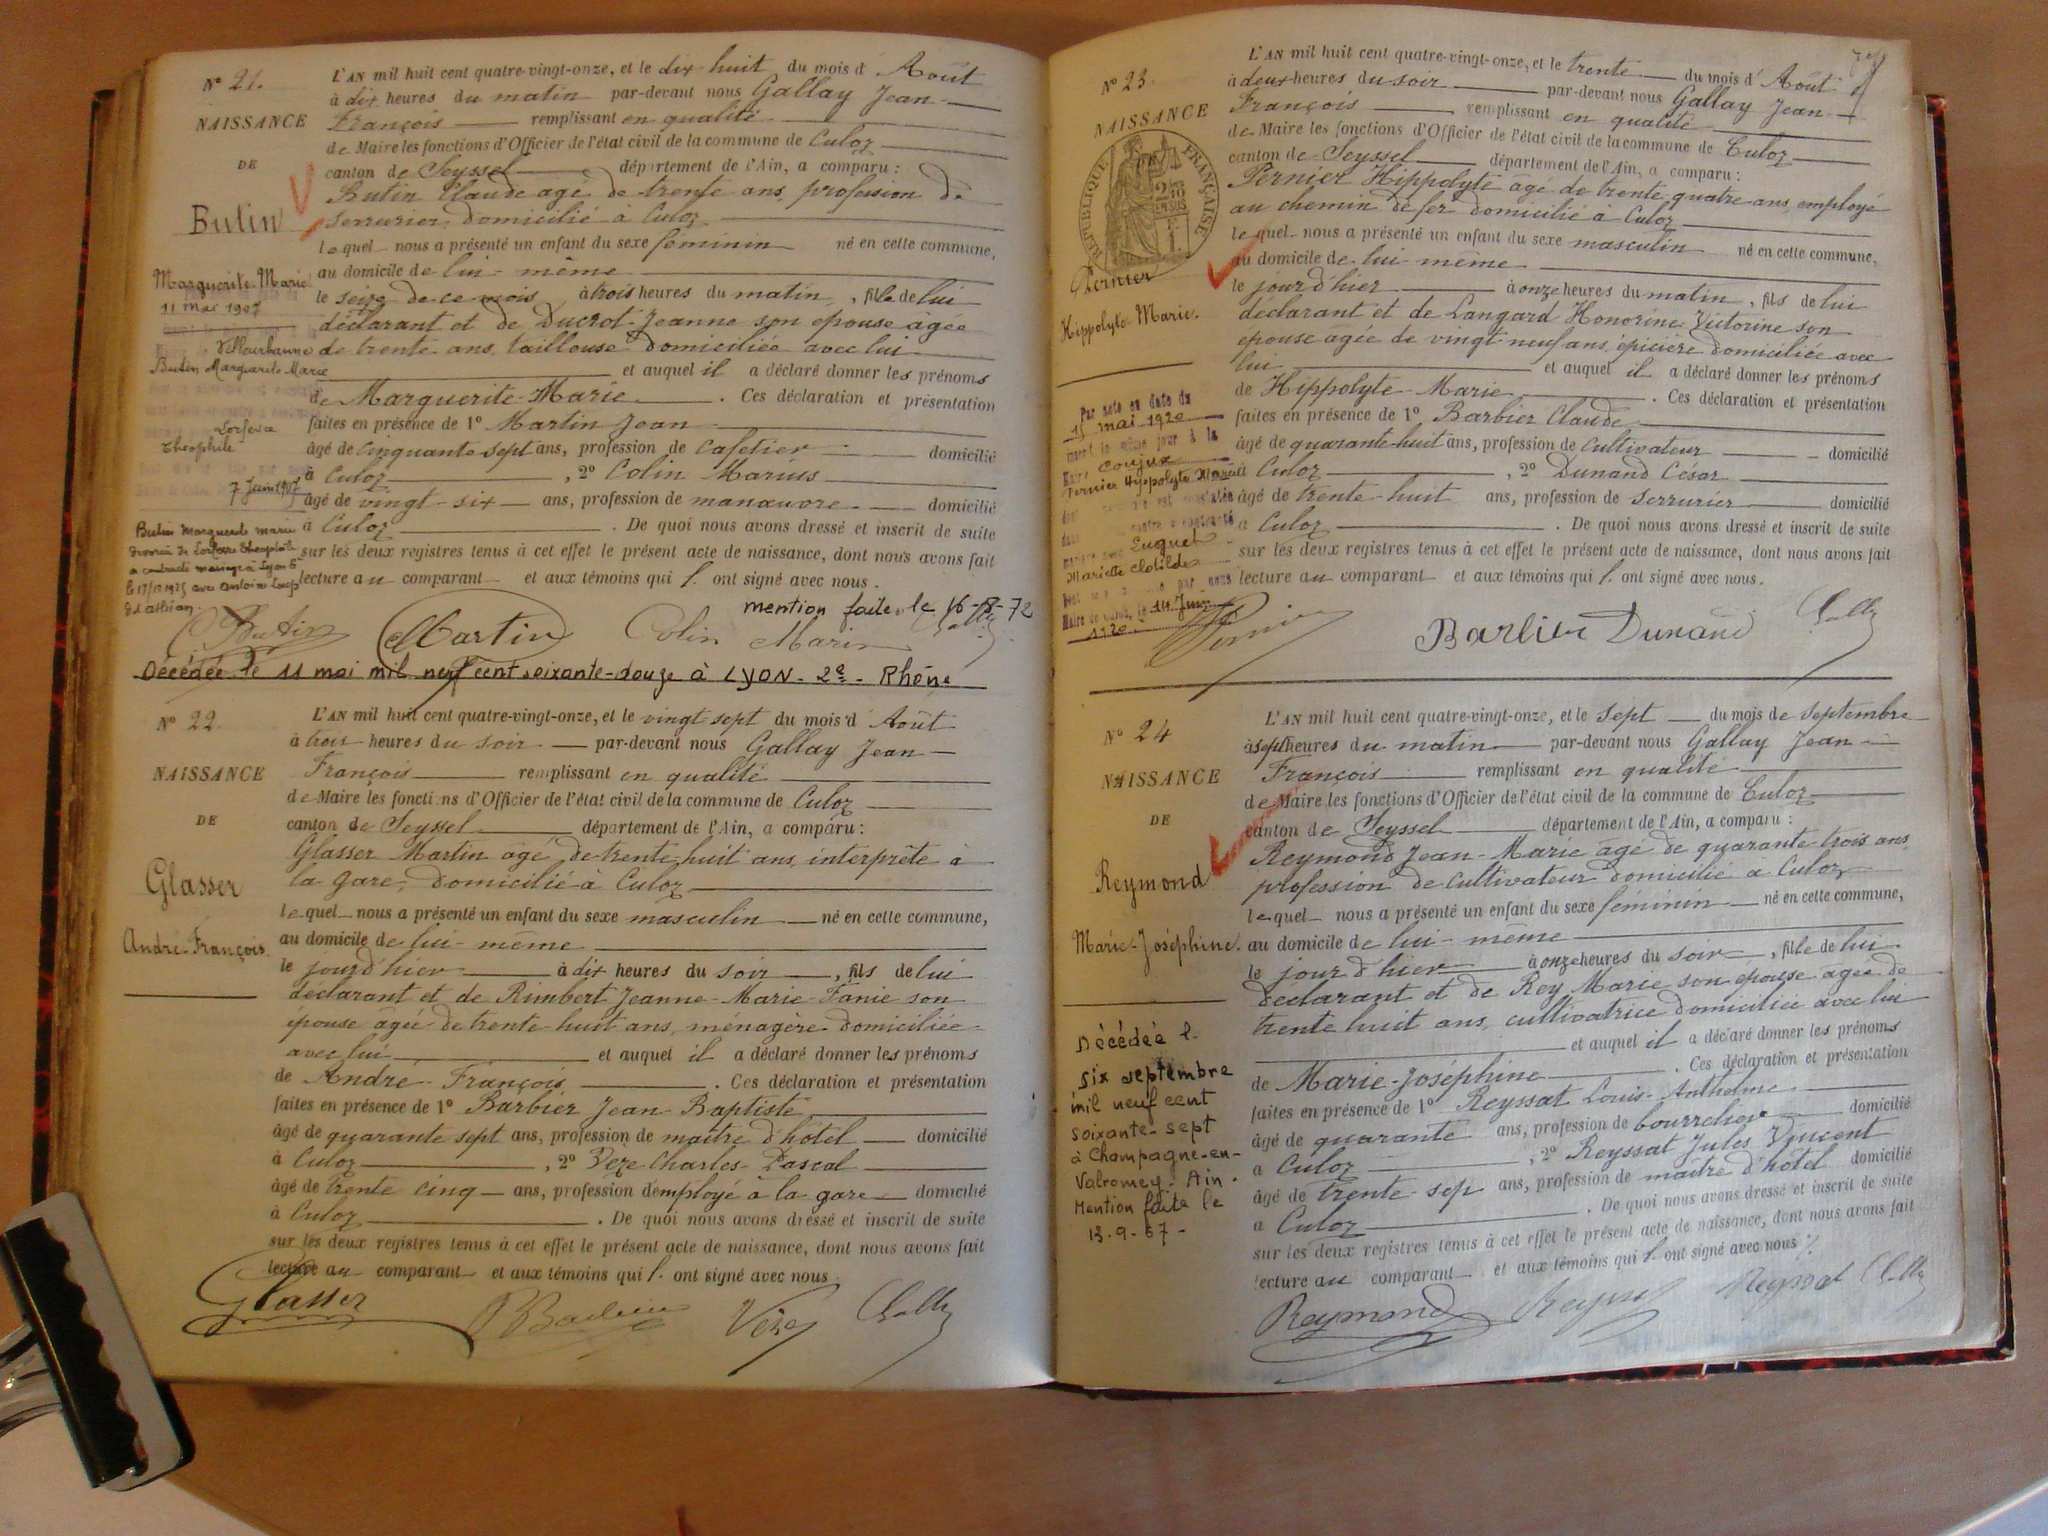 N° 21.
NAISSANCE
DE
Butin
Marguerite-Marie
11 Mai 1907
Villeurbanne
Butin Marguerite Marie
Théophile
7 Juin 1907
Butin Marguerite Marie
divorcée de
a contracté mariage à Lyon 6
avec Antoine
L'AN mil huit cent quatre-vingt-onze, et le dix-huit du mois d'Août
à dix heures du matin par-devant nous Gallay Jean-
François remplissant en qualité
de Maire les fonctions d'Officier de l'état civil de la commune de Culoz
canton de Seyssel département de l'Ain, a comparu :
Butin Claude âgé de trente ans, profession de
serrurier domicilié à Culoz
lequel nous a présenté un enfant du sexe féminin né en cette commune,
au domicile de lui-même
le seize de ce mois, à trois heures du matin, fille de lui
déclarant et de Ducrot Jeanne son épouse âgée
de trente ans, tailleuse domiciliée avec lui
et auquel il a déclaré donner les prénoms
de Marguerite-Marie. Ces déclaration et présentation
faites en présence de 1° Martin Jean
âgé de cinquante sept ans, profession de cafetier domicilié
à Culoz, 2° Colin Marius
âgé de vingt-six ans, profession de manœuvre domicilié
à Culoz. De quoi nous avons dressé et inscrit de suite
sur les deux registres tenus à cet effet le présent acte de naissance, dont nous avons fait
lecture au comparant et aux témoins qui l. ont signé avec nous.
mention faite, le 16-8-72
Butin Martin Colin Marin
Décédée le 11 mai mil neuf cent soixante-douze à LYON - 2e - Rhône
N° 22.
NAISSANCE
DE
Glasser
André-François.
L'AN mil huit cent quatre-vingt-onze, et le vingt sept du mois d'Août
à trois heures du soir par-devant nous Gallay Jean-
François remplissant en qualité
de Maire les fonctions d'Officier de l'état civil de la commune de Culoz
canton de Seyssel département de l'Ain, a comparu :
Glasser Martin âgé de trente huit ans, interprète à
la gare, domicilié à Culoz
lequel nous a présenté un enfant du sexe masculin né en cette commune,
au domicile de lui-même
le jour d'hier à dix heures du soir, fils de lui
déclarant et de Rimbert Jeanne-Marie-Fanie son
épouse âgée de trente-huit ans, ménagère domiciliée
avec lui et auquel il a déclaré donner les prénoms
de André-François. Ces déclaration et présentation
faites en présence de 1° Barbier Jean-Baptiste,
âgé de quarante sept ans, profession de maître d'hôtel domicilié
à Culoz, 2° Veze Charles-Pascal
âgé de trente cinq ans, profession d'employé à la gare domicilié
à Culoz. De quoi nous avons dressé et inscrit de suite
sur les deux registres tenus à cet effet le présent acte de naissance, dont nous avons fait
lecture au comparant et aux témoins qui l. ont signé avec nous.
Glasser Barbier Veze
N° 23.
NAISSANCE
RÉPUBLIQUE FRANÇAISE
Pernier
Hippolyte-Marie.
Par acte en date du
15 mai 1920
Conjux
Pernier Hippolyte Marie
Euguet
Mariette Clotilde
14 Juin
1920.
L'AN mil huit cent quatre-vingt-onze, et le trente du mois d'Août
à deux heures du soir par-devant nous Gallay Jean-
François remplissant en qualité
de Maire les fonctions d'Officier de l'état civil de la commune de Culoz
canton de Seyssel département de l'Ain, a comparu :
Pernier Hippolyte âgé de trente quatre ans, employé
au chemin de fer domicilié à Culoz
lequel nous a présenté un enfant du sexe masculin né en cette commune,
au domicile de lui-même
le jour d'hier à onze heures du matin, fils de lui
déclarant et de Langard Honorine Victorine son
épouse âgée de vingt neuf ans, épicière domiciliée avec
lui et auquel il a déclaré donner les prénoms
de Hippolyte-Marie. Ces déclaration et présentation
faites en présence de 1° Barbier Claude
âgé de quarante-huit ans, profession de cultivateur domicilié
à Culoz, 2° Dunand César
âgé de trente-huit ans, profession de serrurier domicilié
à Culoz. De quoi nous avons dressé et inscrit de suite
sur les deux registres tenus à cet effet le présent acte de naissance, dont nous avons fait
lecture au comparant et aux témoins qui l. ont signé avec nous.
Pernier Barbier Dunand
N° 24
NAISSANCE
DE
Reymond
Marie-Joséphine.
Décédée l.
six septembre
mil neuf cent
soixante-sept
à Champagne-en-
Valromey. Ain.
Mention faite le
13.9.67-
L'AN mil huit cent quatre-vingt-onze, et le sept du mois de septembre
à sept heures du matin par-devant nous Gallay Jean-
François remplissant en qualité
de Maire les fonctions d'Officier de l'état civil de la commune de Culoz
canton de Seyssel département de l'Ain, a comparu :
Reymond Jean-Marie âgé de quarante trois ans,
profession de cultivateur domicilié à Culoz
lequel nous a présenté un enfant du sexe féminin né en cette commune,
au domicile de lui-même
le jour d'hier à onze heures du soir, fille de lui
déclarant et de Rey Marie son épouse âgée de
trente huit ans, cultivatrice domiciliée avec lui
et auquel il a déclaré donner les prénoms
de Marie-Joséphine. Ces déclaration et présentation
faites en présence de 1° Reyssat Louis-Anthelme
âgé de quarante ans, profession de bourrelier domicilié
à Culoz, 2° Reyssat Jules Vincent
âgé de trente-sep ans, profession de maître d'hôtel domicilié
à Culoz. De quoi nous avons dressé et inscrit de suite
sur les deux registres tenus à cet effet le présent acte de naissance, dont nous avons fait
lecture au comparant et aux témoins qui l. ont signé avec nous.
Reymond